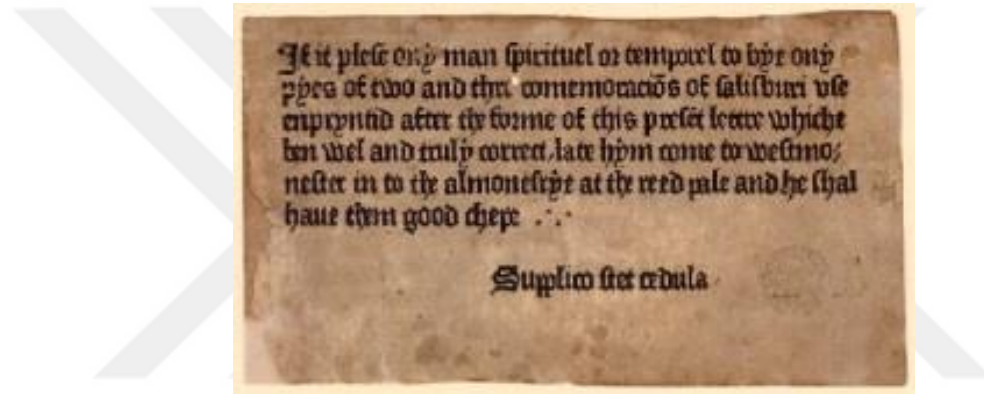 If it plese ony man spirituel or temporel to bye ony
pyes of two and thre comemoraciõs of salisburi vse
enpryntid after the forme of this presẽt lettre whiche
ben wel and truly correct, late hym come to westmo⸗
nester in to the almonesrye at the reed pale and he shal
haue them good chepe .·.
Supplico stet cedula